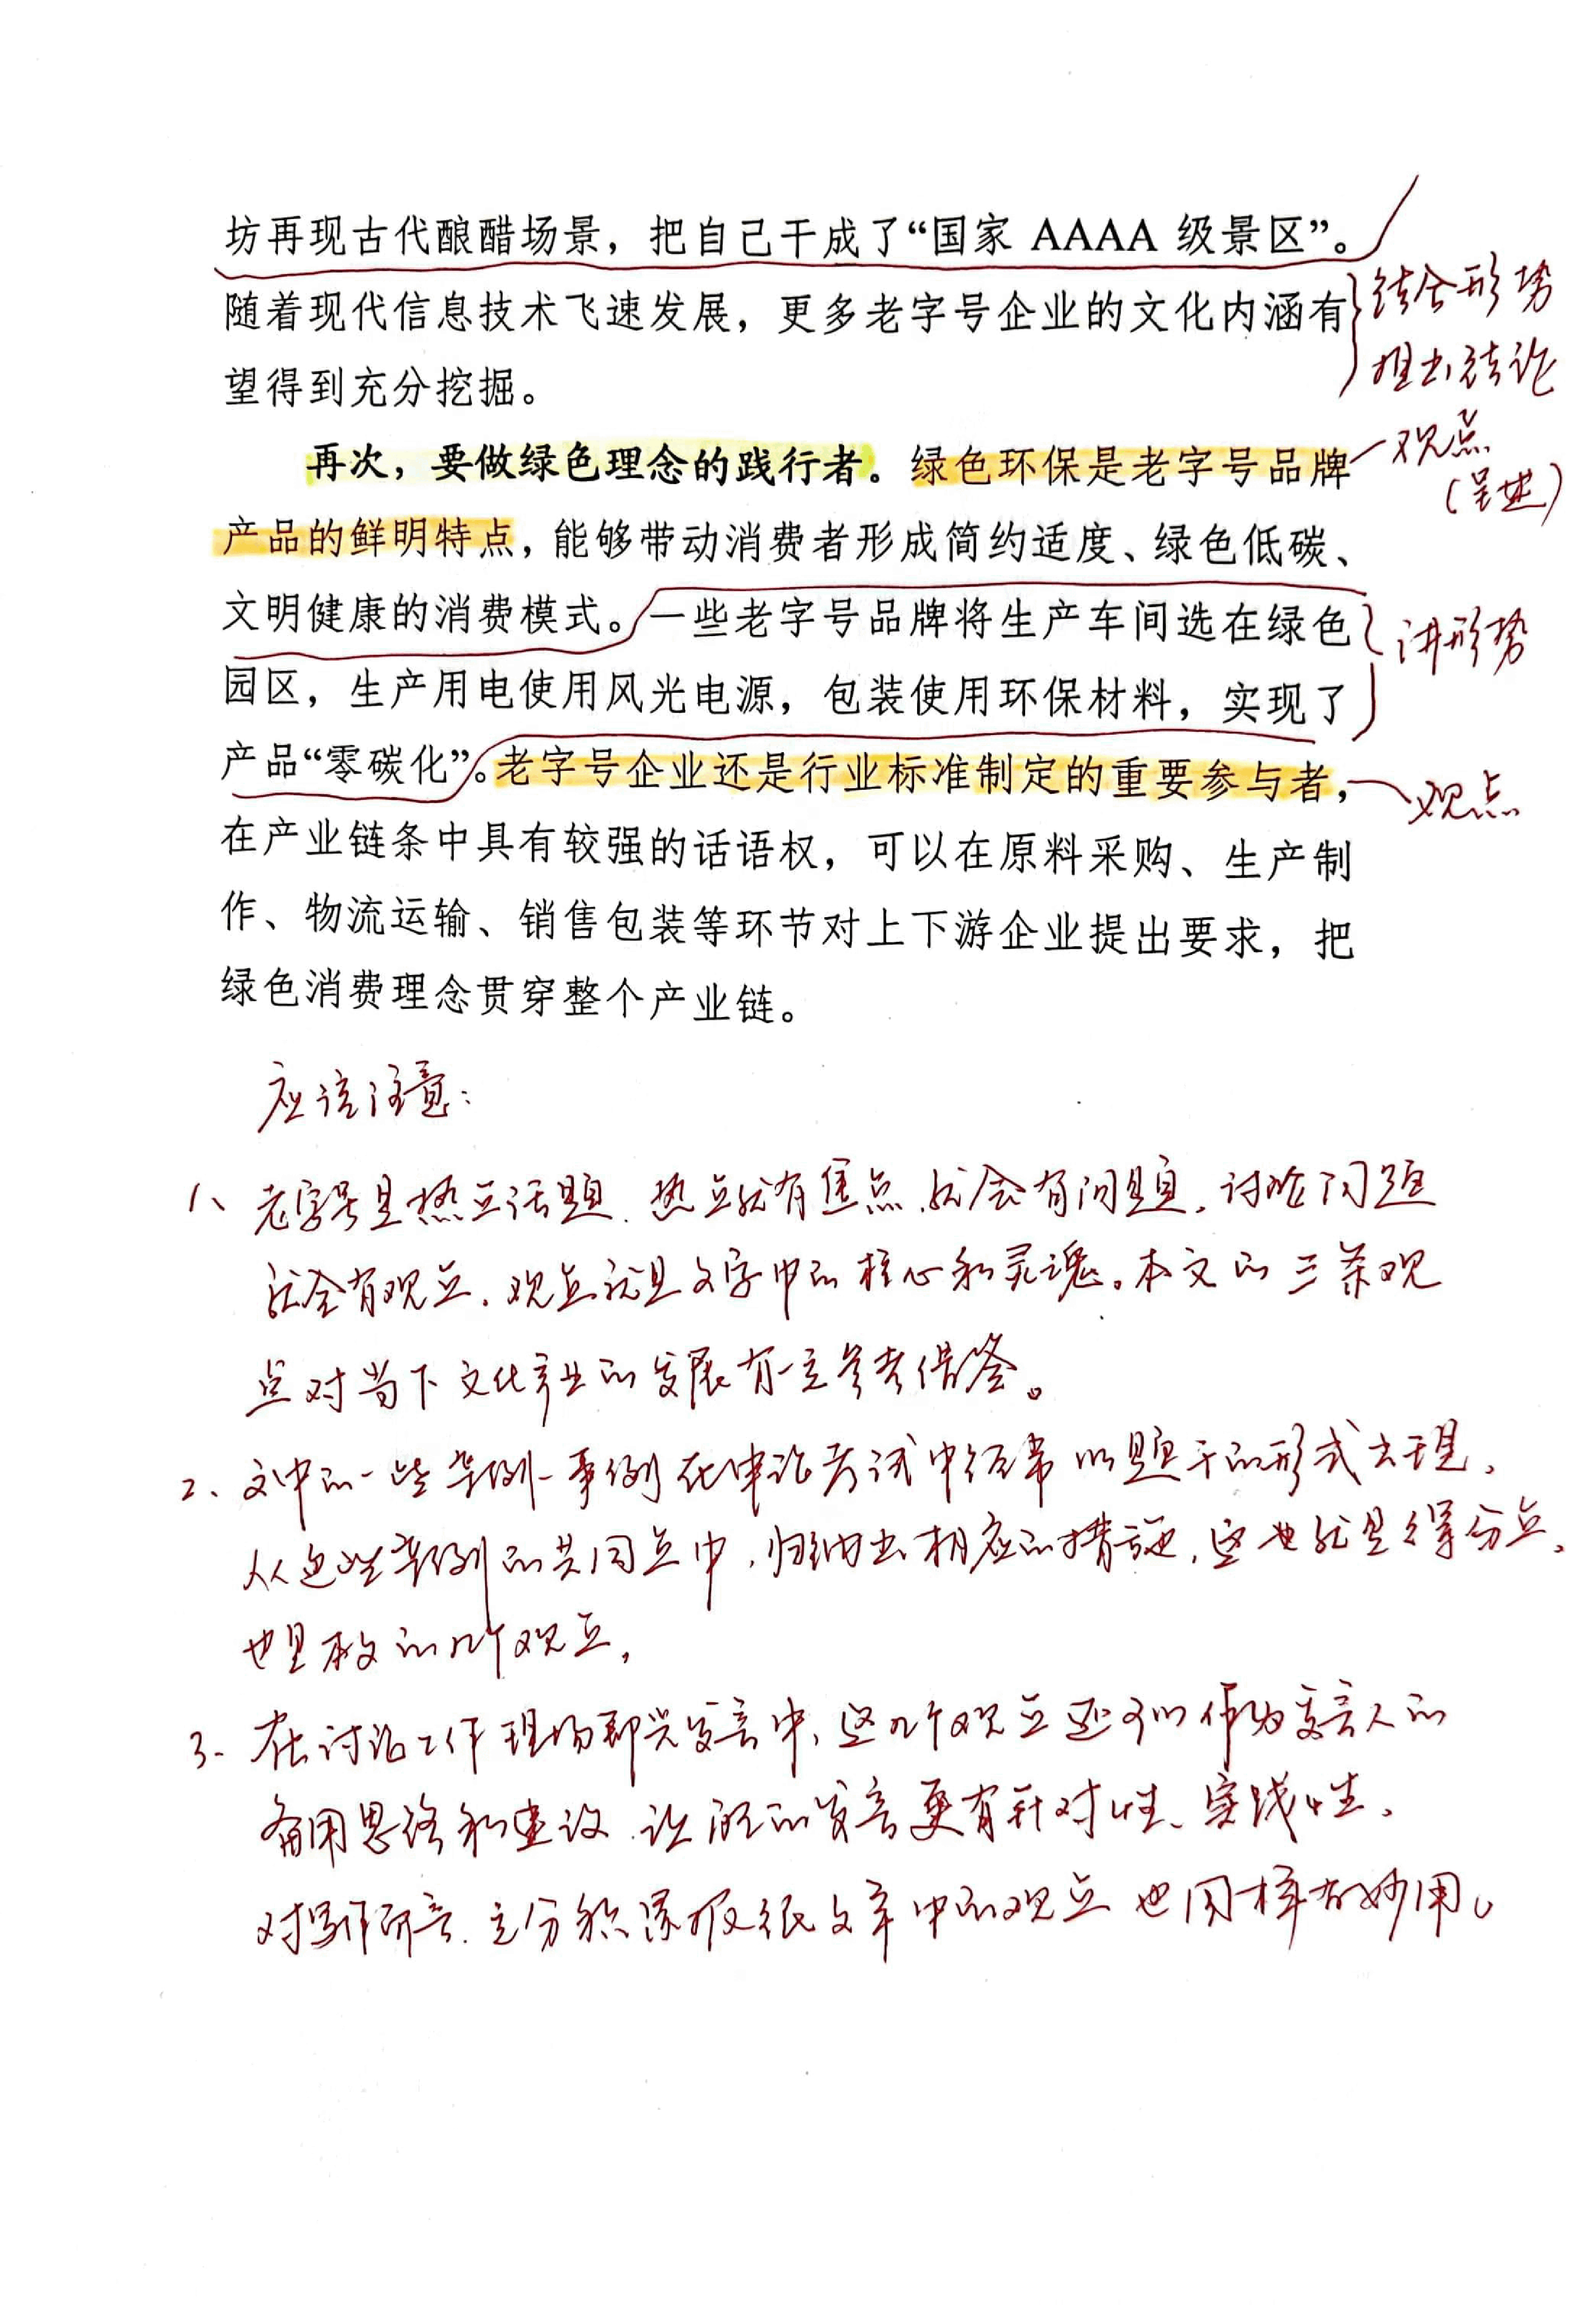 坊再现古代酿醋场景，把自己干成了“国家 AAAA 级景区”。
随着现代信息技术飞速发展，更多老字号企业的文化内涵有
望得到充分挖掘。
结合形势
推出结论
再次，要做绿色理念的践行者。绿色环保是老字号品牌
观点
产品的鲜明特点，能够带动消费者形成简约适度、绿色低碳、
文明健康的消费模式。一些老字号品牌将生产车间选在绿色
讲形势
园区，生产用电使用风光电源，包装使用环保材料，实现了
产品“零碳化”。老字号企业还是行业标准制定的重要参与者，
观点
在产业链条中具有较强的话语权，可以在原料采购、生产制
作、物流运输、销售包装等环节对上下游企业提出要求，把
绿色消费理念贯穿整个产业链。
应该注意：
1、老字号是热点话题，热点就有焦点，就会有问题，讨论问题
就会有观点，观点就是文字中的核心和灵魂。本文的三条观
点对当下文化产业的发展有一定参考借鉴。
2、文中的一些案例、事例在申论考试中经常以题干的形式出现，
从这些案例的共同点中，归纳出相应的措施，这也就是得分点，
也是本文的几个观点，
3、在讨论工作现场即兴发言中，这几个观点还可以作为发言人的
备用思路和建议，让的发言更有针对性、实践性，
对写作而言，充分积累报纸文章中的观点也同样有妙用。